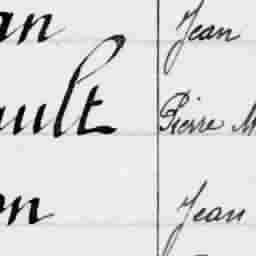 an Jean
ault Pierre M
on Jean